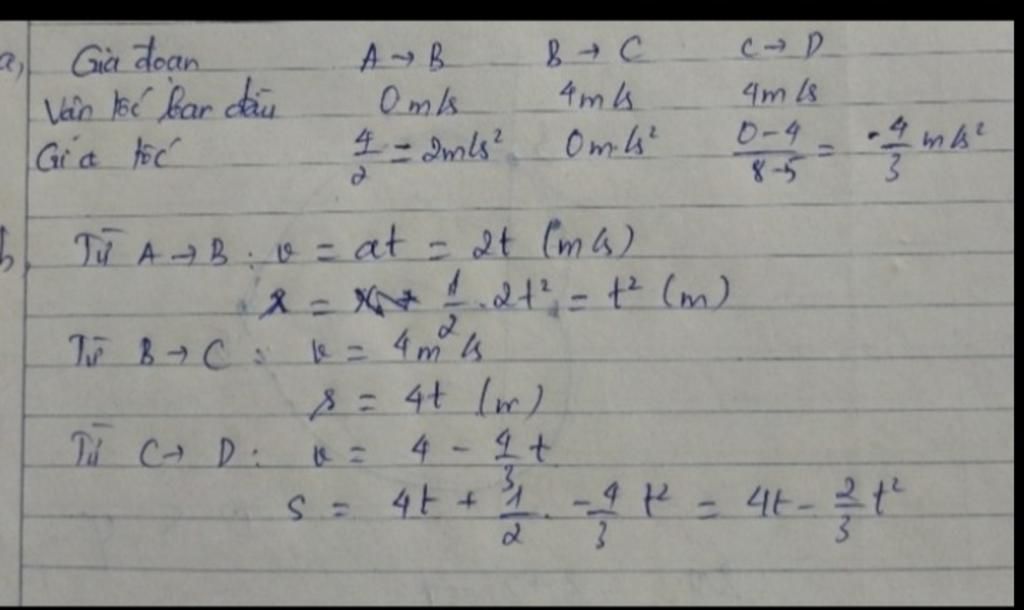 a, Giai đoạn A → B B → C C → D
Vận tốc ban đầu 0 m/s 4 m/s 4 m/s
Gia tốc 4/2 = 2 m/s² 0 m/s² (0-4)/(8-5) = -4/3 m/s²
b, Từ A → B : v = at = 2t (m/s)
s = 1/2 . 2t² = t² (m)
Từ B → C : v = 4 m/s
s = 4t (m)
Từ C → D : v = 4 - 4/3 t
s = 4t + 1/2 . -4/3 t² = 4t - 2/3 t²